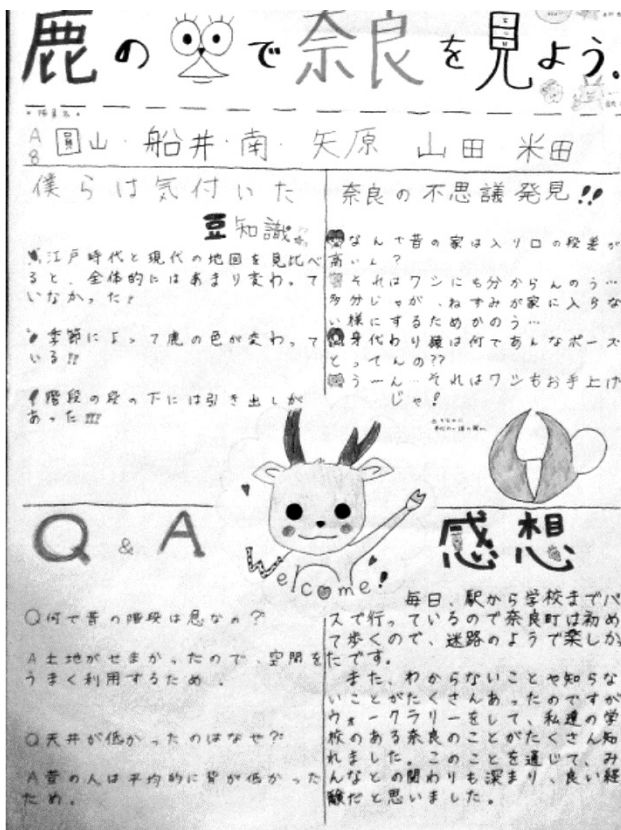 鹿の目で奈良を見よう。
A8
圓山・船井・南・矢原 山田 米田
僕らは気付いた
豆知識
江戸時代と現代の地図を見比べ
ると、全体的にはあまり変わって
いなかった!
季節によって鹿の色が変わって
いる!!
階段の段の下には引き出しが
あった!!!
奈良の不思議発見!!
なんで昔の家は入り口の段差が
高いん?
それはワシにも分からんのう…
多分じゃが、ねずみが家に入らな
い様にするためかのう…
身代わり猿は何であんなポーズ
とってんの??
う〜ん…それはワシもお手上げ
じゃ!
Welcome!
Q&A
Q何で昔の階段は急なの?
A土地がせまかったので、空間を
うまく利用するため。
Q天井が低かったのはなぜ?
A昔の人は平均的に背が低かった
ため。
感想
毎日、駅から学校までバ
スで行っているので奈良町は初め
て歩くので、迷路のようで楽しか
たです。
また、わからないことや知らな
いことがたくさんあったのですが
ウォークラリーをして、私達の学
校のある奈良のことがたくさん知
れました。このことを通じて、み
んなとの関わりも深まり、良い経
験だと思いました。